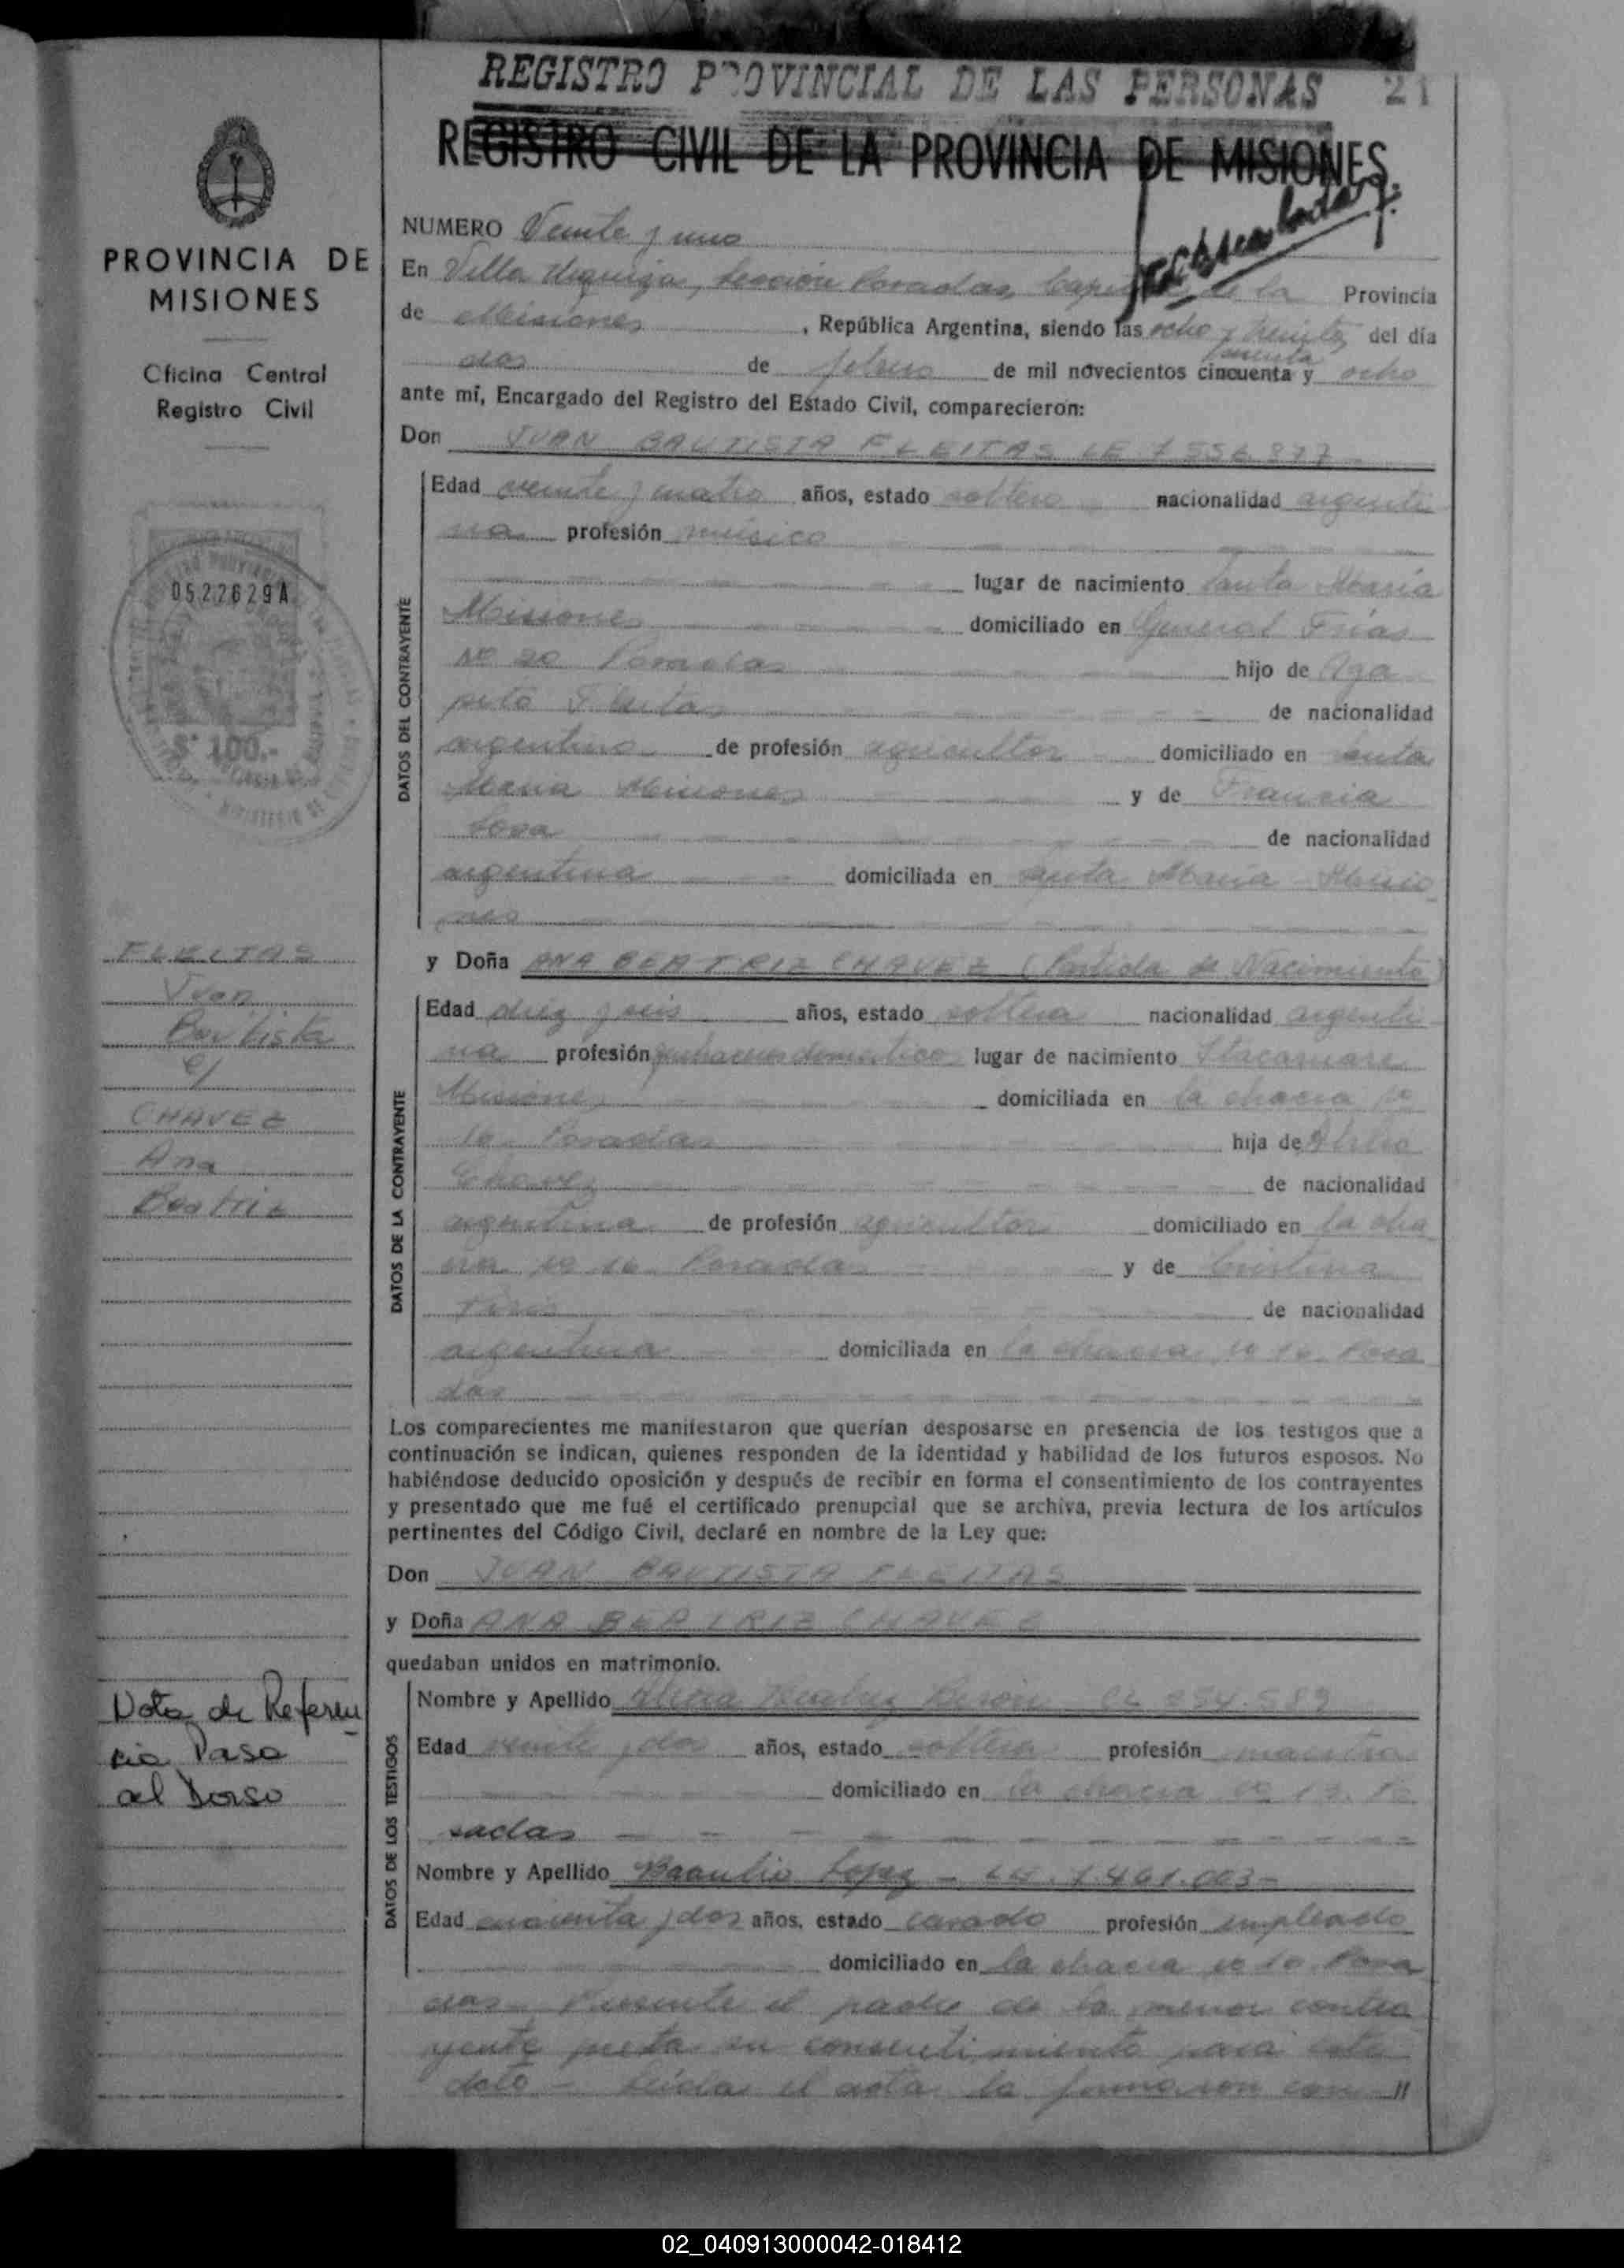 REGISTRO PROVINCIAL DE LAS PERSONAS 21
REGISTRO CIVIL DE LA PROVINCIA DE MISIONES
PROVINCIA DE
MISIONES
Oficina Central
Registro Civil
0522629A
$ 100.-
FLEITAS
Juan
Bautista
c/
CHAVEZ
Ana
Beatriz
Nota de Referen
cia Pasa
al Dorso
NUMERO Veinte y uno
En Villa Urquiza, Sección Posadas, de la Provincia
de Misiones, República Argentina, siendo las ocho y treinta del día
dos de febrero de mil novecientos cincuenta sesenta y ocho
ante mí, Encargado del Registro del Estado Civil, comparecieron:
Don JUAN BAUTISTA FLEITAS LE 7.556.877
DATOS DEL CONTRAYENTE
Edad veinte y cuatro años, estado soltero nacionalidad argenti
na profesión músico
lugar de nacimiento Santa María
Misiones domiciliado en General Frías
Nº 20 Posadas hijo de Aga
pito Fleitas de nacionalidad
argentino de profesión agricultor domiciliado en Santa
María Misiones y de Francia
Sosa de nacionalidad
argentina domiciliada en Santa María Misio
nes
y Doña ANA BEATRIZ CHAVEZ (Partida de Nacimiento)
DATOS DE LA CONTRAYENTE
Edad diez y seis años, estado soltera nacionalidad argenti
na profesión quehaceres domesticos lugar de nacimiento Itacaruare
Misiones domiciliada en la chacra Nº
16 Posadas hija de
Chavez de nacionalidad
argentina de profesión agricultor domiciliado en la cha
cra Nº 16 Posadas y de Cristina
de nacionalidad
argentina domiciliada en la chacra Nº 16 Posa
das
Los comparecientes me manifestaron que querían desposarse en presencia de los testigos que a
continuación se indican, quienes responden de la identidad y habilidad de los futuros esposos. No
habiéndose deducido oposición y después de recibir en forma el consentimiento de los contrayentes
y presentado que me fué el certificado prenupcial que se archiva, previa lectura de los artículos
pertinentes del Código Civil, declaré en nombre de la Ley que:
Don JUAN BAUTISTA FLEITAS
y Doña ANA BEATRIZ CHAVEZ
quedaban unidos en matrimonio.
DATOS DE LOS TESTIGOS
Nombre y Apellido
Edad veinte y dos años, estado soltera profesión maestra
domiciliado en la chacra Nº 13. Po
sadas
Nombre y Apellido Braulio Lopez - LE. 1.461.003-
Edad cincuenta y dos años, estado casado profesión empleado
domiciliado en la chacra Nº 16 Posa
das. Presente el padre de la menor contra
yente presta su consentimiento para este
acto - Leída el acta la firmaron con "
02_040913000042-018412